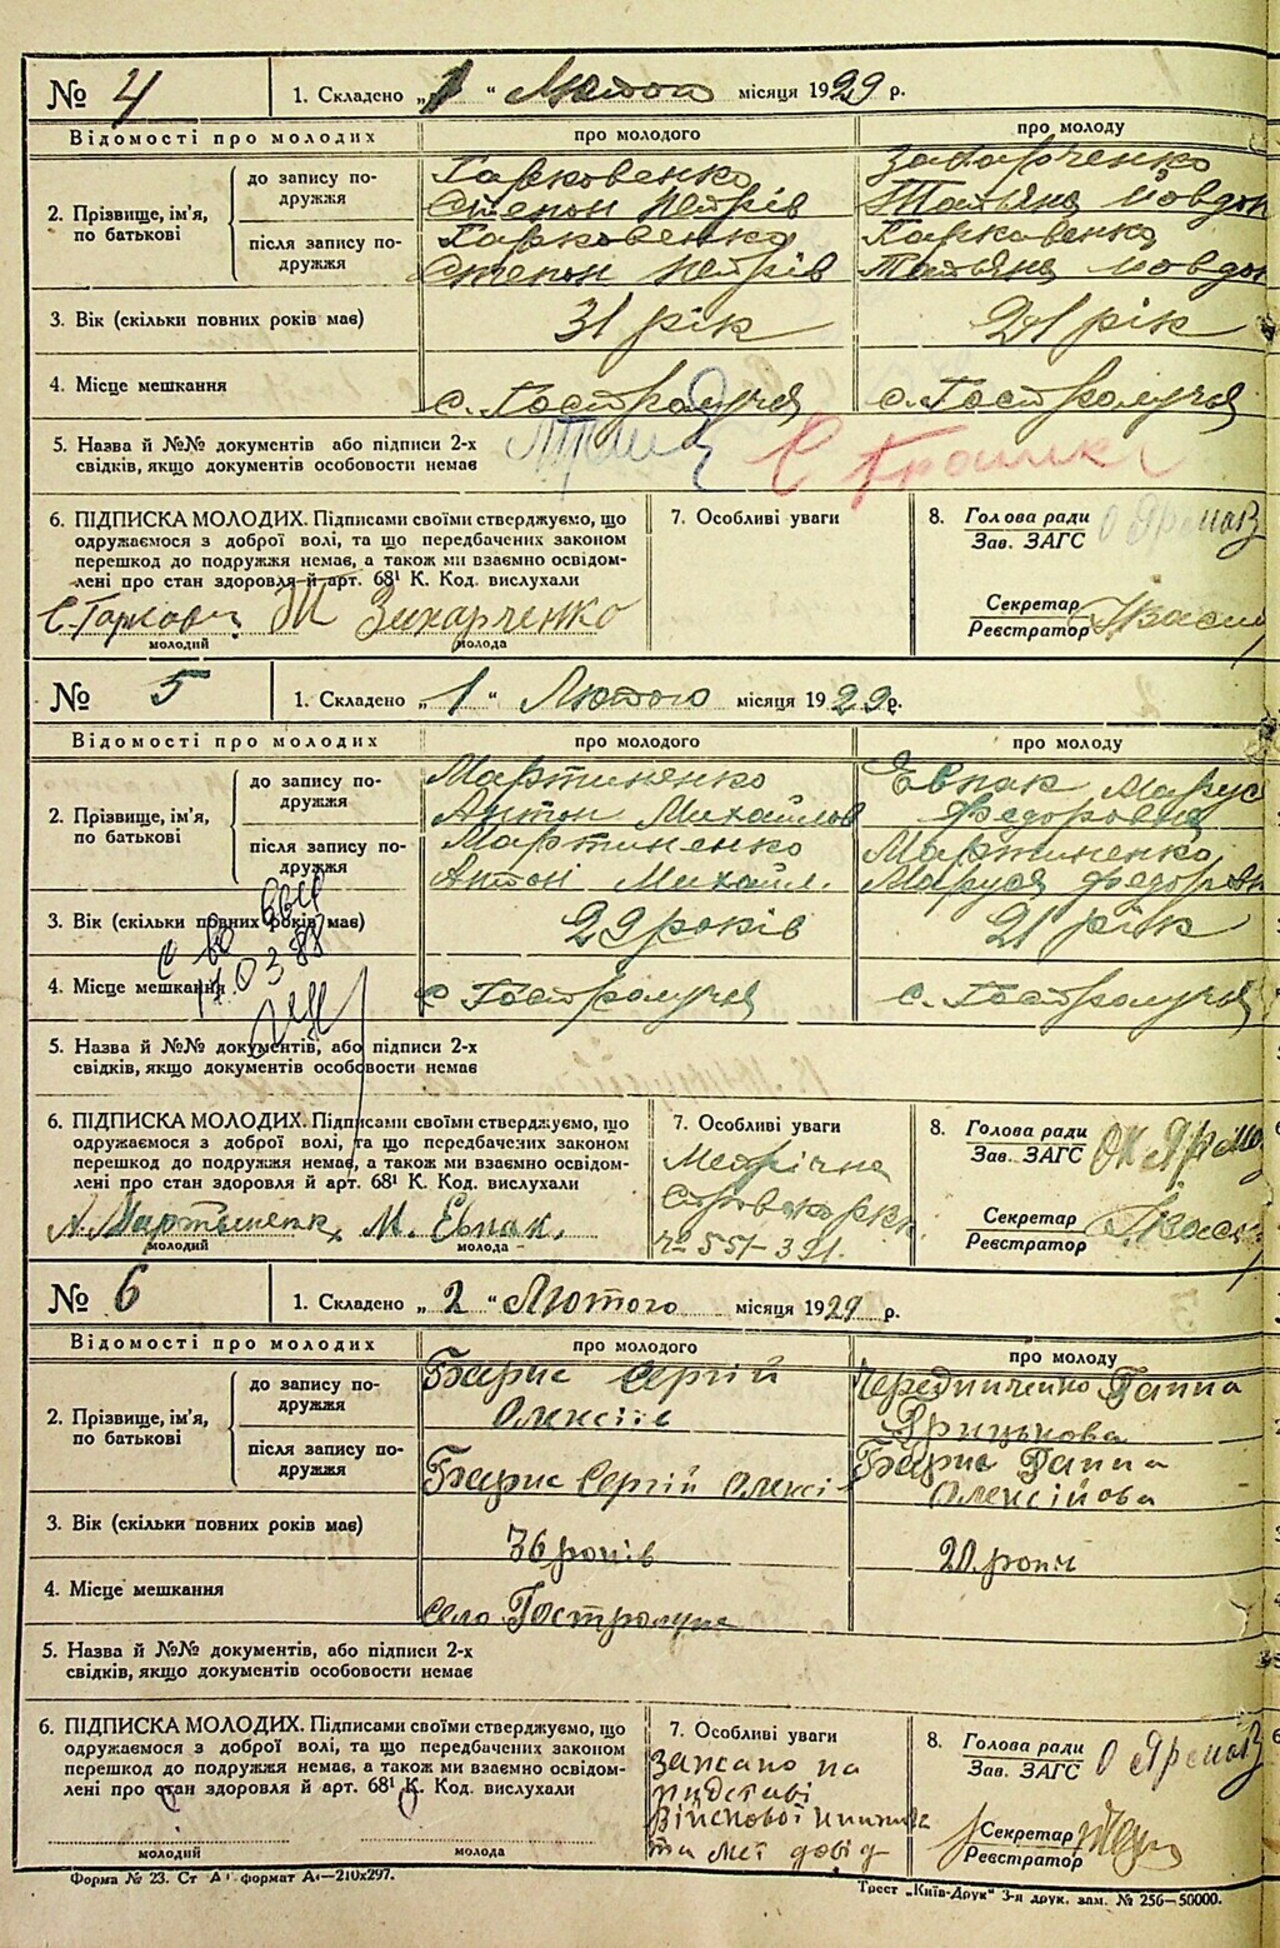 № 4
1. Складено „1“ Лютого місяця 1929 р.
Відомості про молодих
про молодого
про молоду
2. Прізвище, ім'я, по батькові
до запису подружжя
Гарковенко
Степон Петрів
Захарченко
Татьяна Йовдок
після запису подружжя
Гарковенко
Степон Петрів
Гарковенко
Татьяна Йовдок
3. Вік (скільки повних років має)
31 рік
21 рік
4. Місце мешкання
с. Гостролуччя
с. Гостролуччя
5. Назва й №№ документів або підписи 2-х
свідків, якщо документів особовости немає
6. ПІДПИСКА МОЛОДИХ. Підписами своїми стверджуємо, що
одружаємося з доброї волі, та що передбачених законом
перешкод до подружжя немає, а також ми взаємно освідом-
лені про стан здоровля й арт. 68¹ К. Код. вислухали
Захарченко
молодий
молода
7. Особливі уваги
8. Голова ради
Зав. ЗАГС
Секретар
Реєстратор
№ 5
1. Складено „1“ Лютого місяця 1929 р.
Відомості про молодих
про молодого
про молоду
2. Прізвище, ім'я, по батькові
до запису подружжя
Мартиненко
Антон Михайлов
Евпак Марус
Федоровна
після запису подружжя
Мартиненко
Антон Михайл.
Мартиненко
Маруся Федоров
3. Вік (скільки повних років має)
29 років
21 рік
4. Місце мешкання
с Гостролуччя
с. Гостролуччя
17.03.88
5. Назва й №№ документів, або підписи 2-х
свідків, якщо документів особовости немає
6. ПІДПИСКА МОЛОДИХ. Підписами своїми стверджуємо, що
одружаємося з доброї волі, та що передбачених законом
перешкод до подружжя немає, а також ми взаємно освідом-
лені про стан здоровля й арт. 68¹ К. Код. вислухали
А. Мартыненк М. Евпак.
молодий
молода
7. Особливі уваги
Метрічна
8. Голова ради
Зав. ЗАГС
Секретар
Реєстратор
№ 6
1. Складено „2“ Лютого місяця 1929 р.
Відомості про молодих
про молодого
про молоду
2. Прізвище, ім'я, по батькові
до запису подружжя
Барис Сергій
Олексіїв
Чередниченко Ганна
Грицькова
після запису подружжя
Барис Сергій Олексі
Барис Ганна
Олексійова
3. Вік (скільки повних років має)
36 років
20 рокі
4. Місце мешкання
село Гостролучя
5. Назва й №№ документів, або підписи 2-х
свідків, якщо документів особовости немає
6. ПІДПИСКА МОЛОДИХ. Підписами своїми стверджуємо, що
одружаємося з доброї волі, та що передбачених законом
перешкод до подружжя немає, а також ми взаємно освідом-
лені про стан здоровля й арт. 68¹ К. Код. вислухали
молодий
молода
7. Особливі уваги
записано на
підставі
військової книжки
та мет довід
8. Голова ради
Зав. ЗАГС
О Ярмак
Секретар
Реєстратор
Форма № 23. Ст А формат А₄—210х297.
Трест „Київ-Друк“ 3-я друк. зам. № 256—50000.